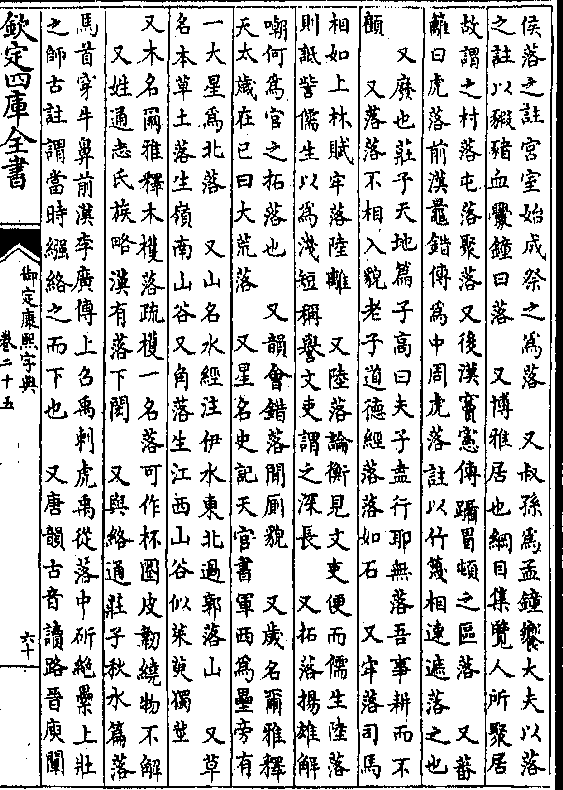 侯落之註宮室始成祭之爲落　又叔孫爲孟鐘饗大夫以落
之註以豭豬血釁鐘曰落　又博雅居也綱目集覽人所聚居
故謂之村落屯落聚落又後漢竇憲傳躡冒頓之區落　又藩
籬曰虎落前漢鼂錯傳爲中周虎落註以竹篾相連遮落之也
又廢也莊子天地篇子高曰夫子盍行耶無落吾事耕而不
顧　又落落不相入貌老子道德經落落如石　又牢落司馬
相如上林賦牢落陸離　又陸落論衡見文吏便而儒生陸落
則詆訾儒生以爲淺短稱譽文吏謂之深長　又拓落揚雄解
嘲何爲官之拓落也　又韻會錯落閒厠貌　又歲名爾雅釋
天太歲在巳曰大荒落　又星名史記天官書軍西爲壘旁有
一大星爲北落　又山名水經注伊水東北過郭落山　又草
名本草土落生嶺南山谷又角落生江西山谷似茱萸獨莖
又木名爾雅釋木檴落疏檴一名落可作杯圈皮韌繞物不解
又姓通志氏族略漢有落下閎　又與絡通莊子秋水篇落
馬首穿牛鼻前漢李廣傳上召禹刺虎禹從落中斫絕纍上壯
之師古註謂當時縆絡之而下也　又唐韻古音讀路晉庾闡
欽定四庫全書
御定康熙字典
卷二十五
六十